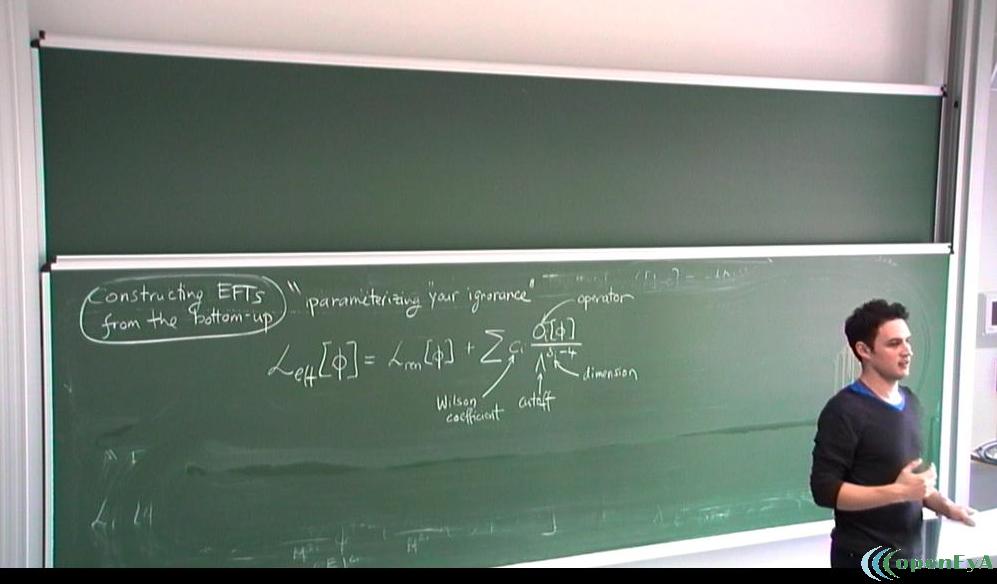 Constructing EFTs
from the bottom-up
"parameterizing your ignorance"
operator
L_eff[ϕ] = L_ren[ϕ] + Σ c_i O_i[ϕ] / Λ^{δ_i-4}
dimension
Wilson
coefficient
cutoff
openEyA